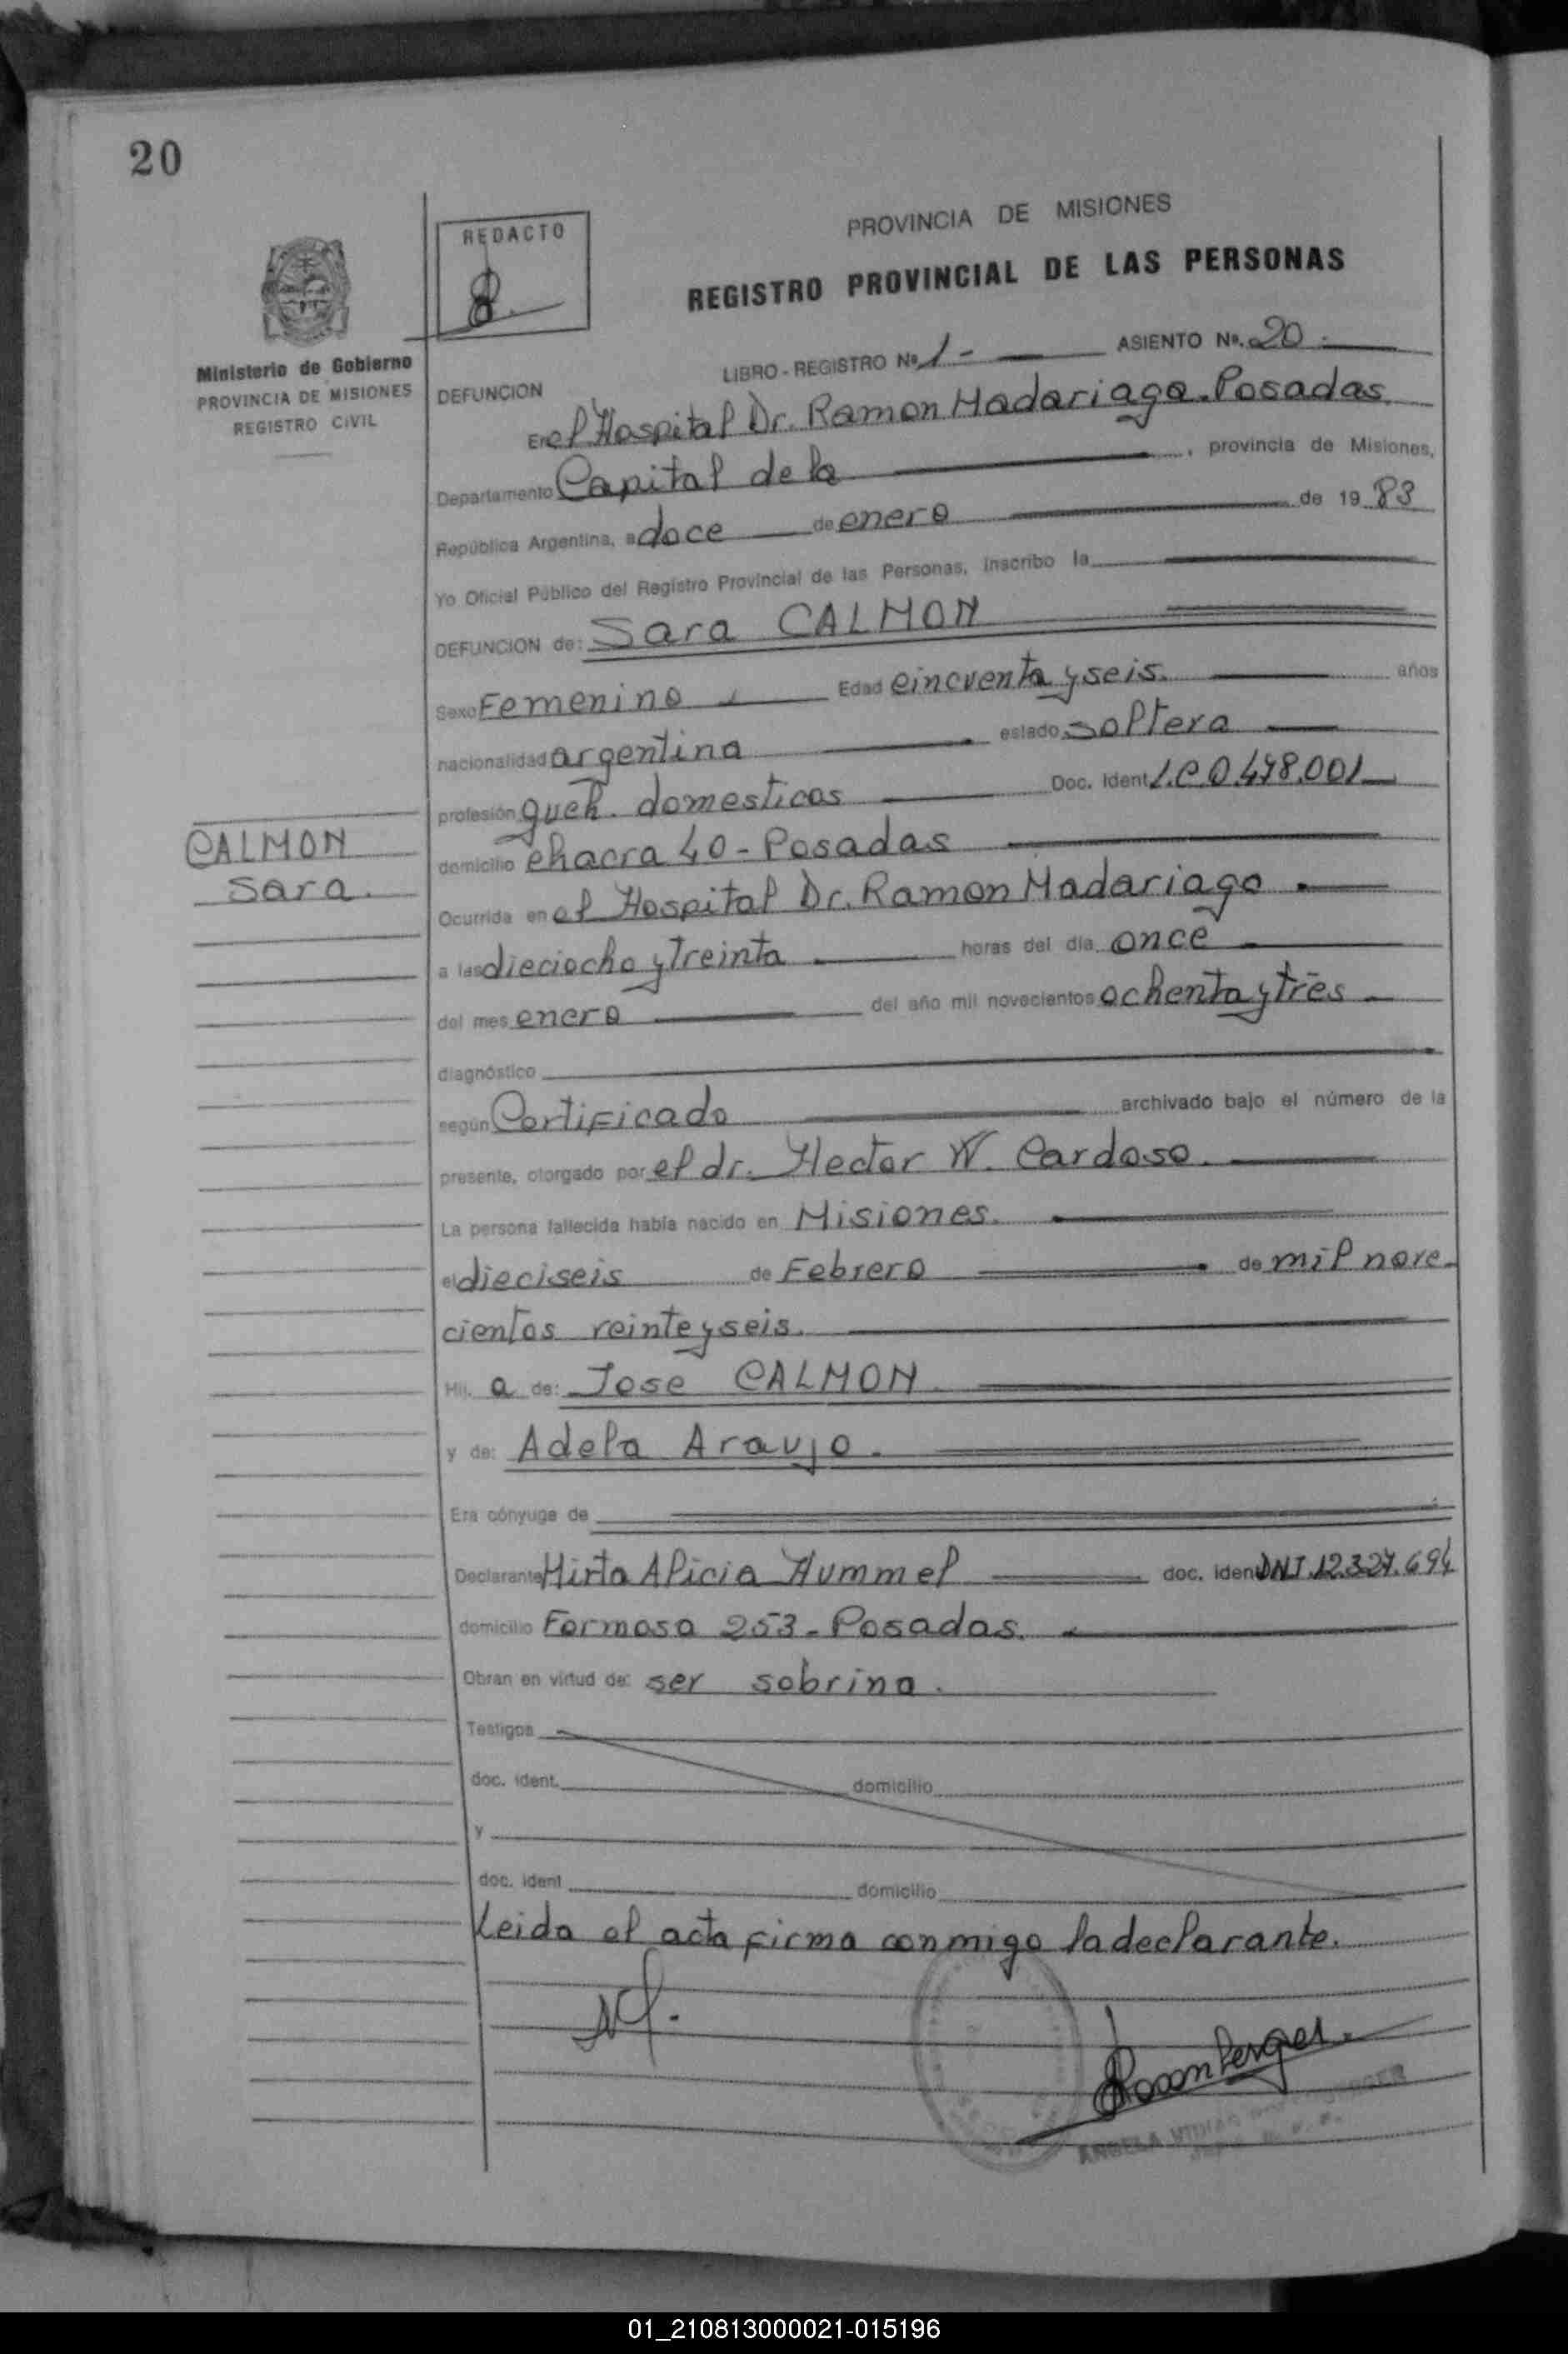 20
PROVINCIA DE MISIONES
REDACTO
REGISTRO PROVINCIAL DE LAS PERSONAS
Ministerio de Gobierno
PROVINCIA DE MISIONES
REGISTRO CIVIL
LIBRO - REGISTRO Nº 1 - ASIENTO Nº. 20.
DEFUNCION
En el Hospital Dr. Ramon Madariaga. Posadas.
Departamento Capital de la , provincia de Misiones,
República Argentina, a doce de enero de 19 83
Yo Oficial Público del Registro Provincial de las Personas, inscribo la
DEFUNCION de: Sara CALMON
Sexo Femenino Edad cincuenta y seis. años
nacionalidad argentina estado soltera
profesión queh. domesticos Doc. Ident L.C.0.478.001
domicilio chacra 40 - Posadas
CALMON
Sara.
Ocurrida en el Hospital Dr. Ramon Madariaga.
a las dieciocho y treinta horas del día once
del mes enero del año mil novecientos ochenta y tres
diagnóstico
según Certificado archivado bajo el número de la
presente, otorgado por el dr. Hector W. Cardoso.
La persona fallecida había nacido en Misiones.
el dieciseis de Febrero de mil nove-
cientos veinte y seis.
Hij. a de: Jose CALMON.
y de: Adela Araujo.
Era cónyuge de
Declarante Mirta Alicia Hummel doc. ident DNI.12.327.694
domicilio Formosa 253 - Posadas.
Obran en virtud de: ser sobrina.
Testigos
doc. ident. domicilio
y
doc. ident domicilio
Leida el acta firma conmigo la declarante.
ANGELA
01_210813000021-015196